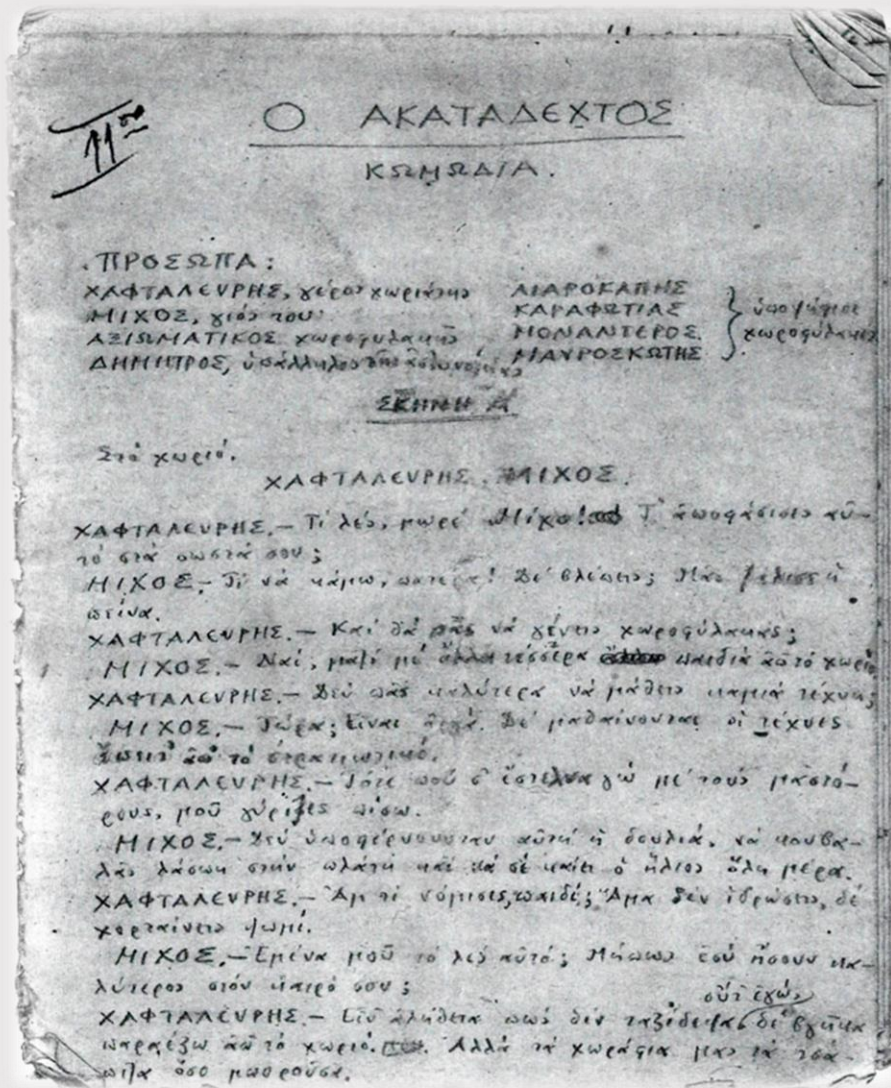 11ον
Ο ΑΚΑΤΑΔΕΧΤΟΣ
ΚΩΜΩΔΙΑ.
ΠΡΟΣΩΠΑ:
ΧΑΦΤΑΛΕΥΡΗΣ, γέρος χωριάτης ΛΙΑΡΟΚΑΠΗΣ
ΜΙΧΟΣ, γιός του ΚΑΡΑΦΩΤΙΑΣ } ὑποψήφιοι
ΑΞΙΩΜΑΤΙΚΟΣ χωροφυλακῆς ΜΟΝΑΝΤΕΡΟΣ χωροφύλακες
ΔΗΜΗΤΡΟΣ, ὑπάλληλος τῆς ἀστυνομίας ΜΑΥΡΟΣΚΩΤΗΣ
ΣΚΗΝΗ Α
Στό χωριό.
ΧΑΦΤΑΛΕΥΡΗΣ, ΜΙΧΟΣ.
ΧΑΦΤΑΛΕΥΡΗΣ.— Τί λές, μωρέ Μίχο! Τ' ἀποφάσισες αὐ-
τό στά σωστά σου;
ΜΙΧΟΣ.— Τί νά κάμω, πατέρα! Δέ βλέπεις; Μᾶς ἡ
πείνα.
ΧΑΦΤΑΛΕΥΡΗΣ.— Καί θά πᾶς νά γένεις χωροφύλακας;
ΜΙΧΟΣ.— Ναί, μαζί μέ ἄλλα τέσσερα παιδιά ἀπ τό χωριό
ΧΑΦΤΑΛΕΥΡΗΣ.— Δέν πᾶς καλύτερα νά μάθεις καμιά τέχνη;
ΜΙΧΟΣ.— Τώρα; Εἶναι ἀργά. Δέ μαθαίνονται οἱ τέχνες
ὕστερ' ἀπ' τό στρατιωτικό.
ΧΑΦΤΑΛΕΥΡΗΣ.— Τότε πού σ' ἔστελνα γώ μέ τούς μαστό-
ρους, μοῦ γύριζες πίσω.
ΜΙΧΟΣ.— Δέν ὑποφέρνουνταν αὐτή ἡ δουλιά, νά κουβα-
λᾶς λάσπη στήν πλάτη καί νά σέ καίει ὁ ἥλιος ὅλη μέρα.
ΧΑΦΤΑΛΕΥΡΗΣ.— Ἄμ τί νόμισες, παιδί; Ἄμα δέν ἱδρώσεις, δέ
χορταίνεις ψωμί.
ΜΙΧΟΣ.— Ἐμένα μοῦ τό λές αὐτό; Μήπως ἐσύ ἤσουν κα-
λύτερος στόν καιρό σου;
οὔτ' ἐγώ,
ΧΑΦΤΑΛΕΥΡΗΣ.— ἀλήθεια πώς δέν ταξίδεψα δέ βγῆκα
παραέξω ἀπ τό χωριό. Ἀλλά τά χωράφια μας τά τσά-
πιζα ὅσο μποροῦσα.